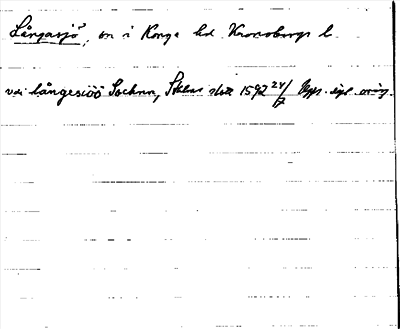 Långasjö, sn i Konga hd Kronobergs l.
vdi långesiöö Sochnn, Sthlms slott 1592 24/7 Upps. eget. orig.